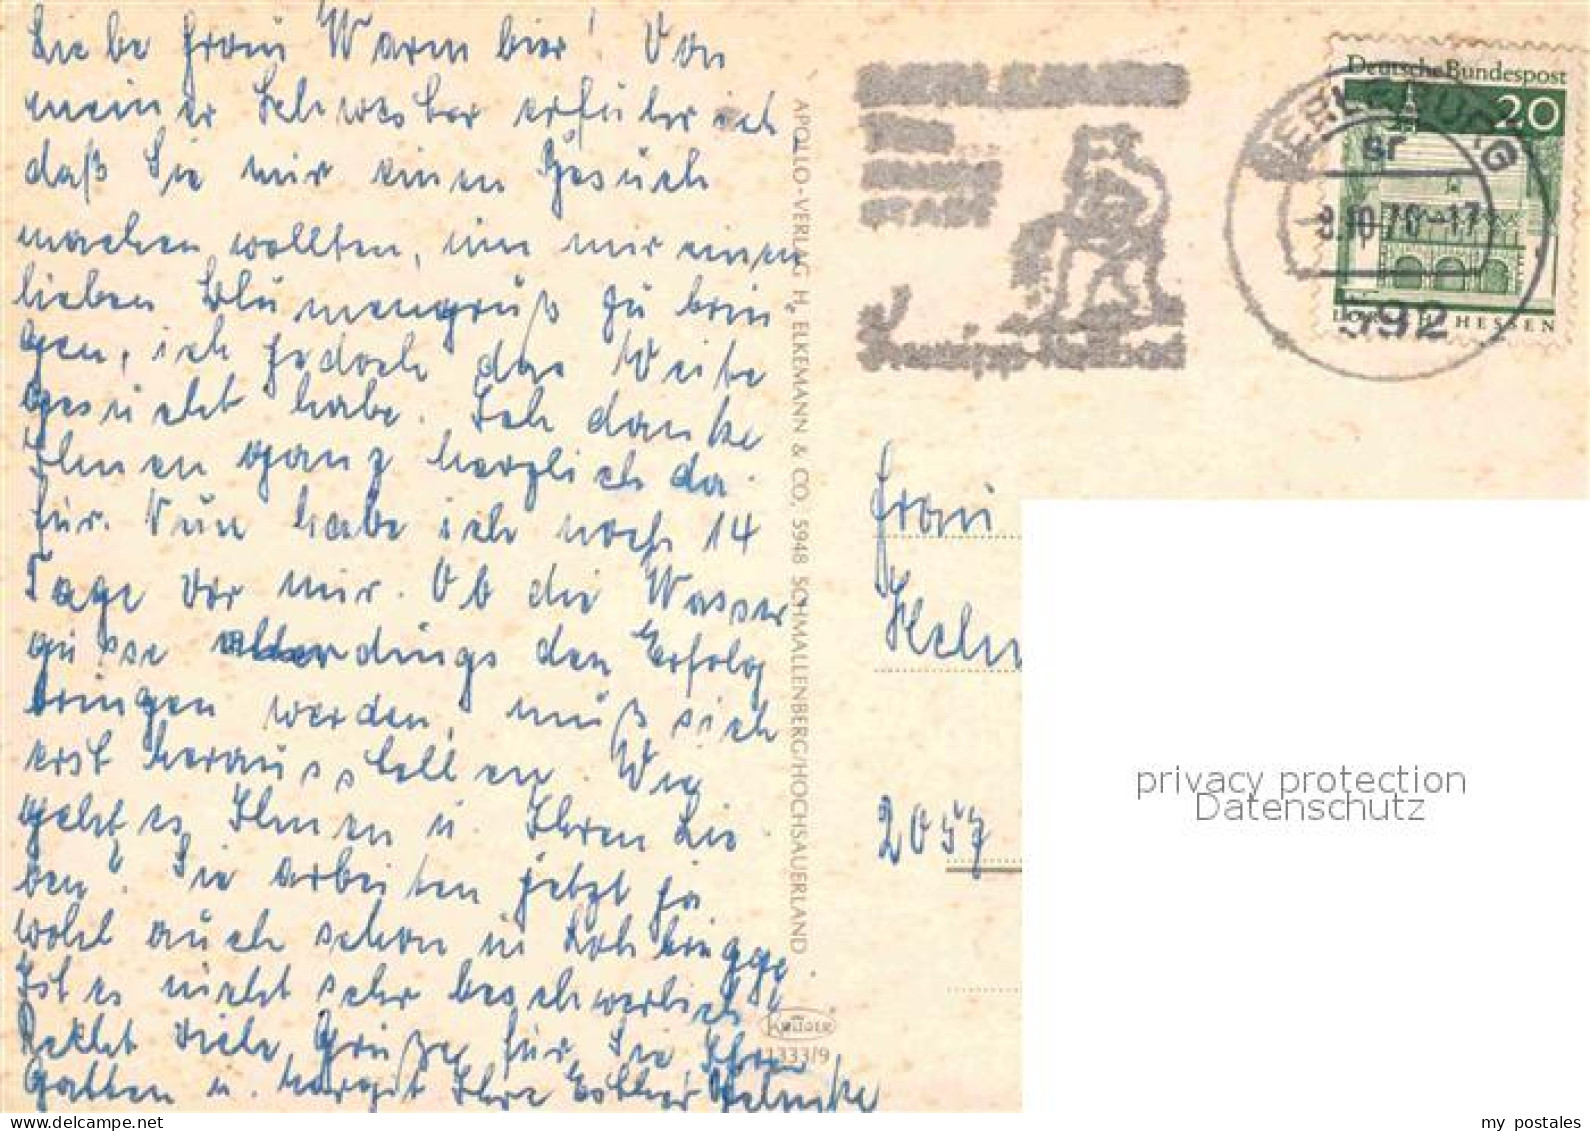 Liebe Frau Warmbier! Von
meiner Schwester erfuhr ich
daß Sie mir einen Besuch
machen wollten, um mir einen
lieben Blumengruß zu brin
gen, ich jedoch das Weite
gesucht habe. Ich danke
Ihnen ganz herzlich da
für. Nun habe ich noch 14
Tage vor mir. Ob die Wasser
güsse allerdings den Erfolg
bringen werden, muß sich
erst herausstellen. Wie
geht es Ihnen u. Ihren Lie
ben? Sie arbeiten jetzt ja
wohl auch schon in Lohbrügge.
Ist es nicht sehr beschwerlich?
Recht viele Grüße für Sie Ihren
Gatten u. Margit Ihre Esther
APOLLO-VERLAG H. ELKEMANN & CO., 5948 SCHMALLENBERG/HOCHSAUERLAND
KRÜGER
1333/9
Deutsche Bundespost
20
LORSCH HESSEN
BERLEBURG
sr
8.10.70-17
592
Kneipp-Heilbad
Frau
2057
privacy protection
Datenschutz
my postales